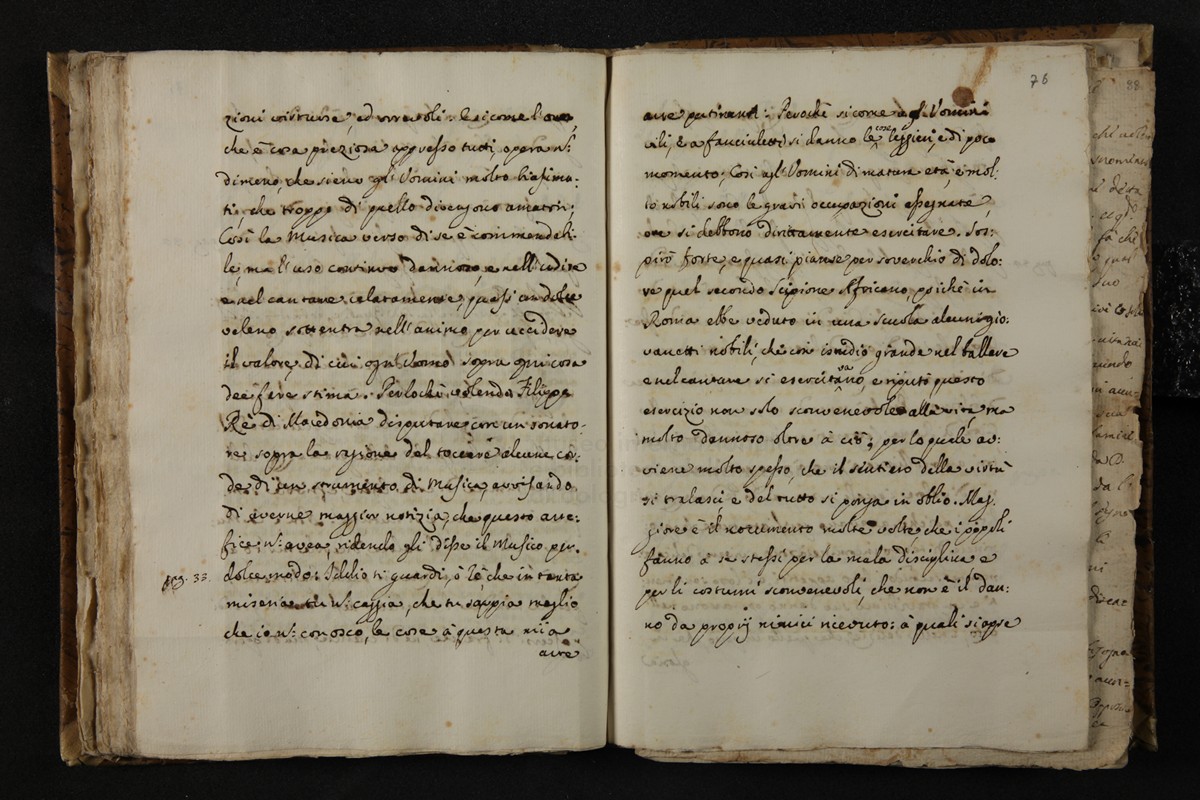 zioni virtuose, ed onorevoli: e sicome l'oro,
che è cosa preziosa appresso tutti, opera n.
dimeno che sieno gl'Uomini molto biasima-
ti, che troppo di quello divengono amatori;
Così la Musica verso di se è commendabi-
le, ma l'uso continuo dannoso, e nell'udire
e nel cantare celatamente, quasi un dolce
veleno sottentra nell'animo per uccidere
il valore, di cui ogni Uomo sopra ogni cosa
dee fare stima. Perloché volendo Filippo
Rè di Macedonia disputare con un sonato-
re sopra la ragione del toccare alcune cor-
de di un strumento di Musica, avvisando
di averne maggior notizia, che questo arte-
fice n. avea, ridendo gli disse il Musico per
pag. 33. dolce modo: Iddio ti guardi, ò Rè, che in tanta
miseria tu n. caggia, che tu sappia meglio
che io n. conosco, le cose à questa mia
arte
76
arte pertinenti: Perochè sicome agl'Uomini
vili, e a fanciuletti si danno le cose leggieri, e di poco
momento; Così agl'Uomini di matura età, e mol-
to nobili sono le gravi occupazioni assegnate,
ove si debbono dirittamente esercitare. Sos-
pirò forte, e quasi pianse per soverchio di dolo-
re quel secondo Scipione Africano, poiché in
Roma ebbe veduto in una scuola alcuni gio-
vanetti nobili, che con istudio grande nel ballare
e nel cantare si esercitavano, e riputò questo
esercizio non solo sconvenevole alla vita, ma
molto dannoso oltre à ciò; per lo quale av-
viene molto spesso, che il sentiero della virtù
si tralasci, e del tutto si ponga in oblio. Mag-
giore è il nocumento molte volte, che i popoli
fanno a se stessi per la mala disciplina e
per li costumi sconvenevoli, che non è il dan-
no da proprij nimici ricevuto: à quali si opse
88